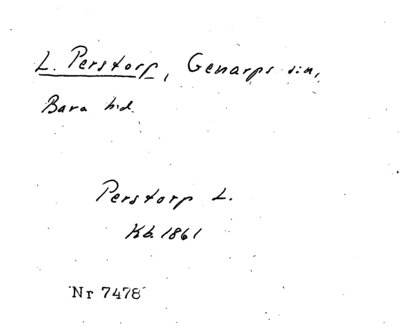 L. Perstorp, Genarps sn,
Bara hd.
Perstorp L.
Kb. 1861
Nr 7478